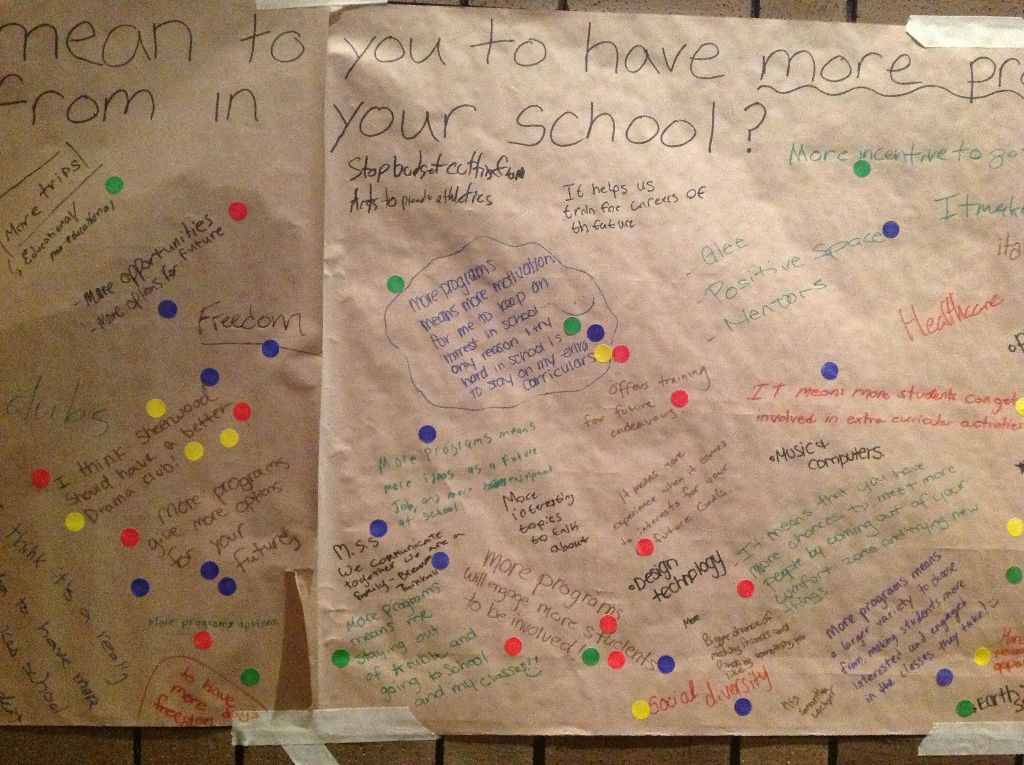 mean to you to have more pr
from in your school?
More trips!
Educational/
non-educational
- More opportunities
- More options for future
Freedom
clubs
I think Sherwood
should have a better
Drama club!
More programs
give more options
for your
future
think it's a really
to have more
school
More programs options
to have
more
freestyle days
Stop budget cutting from
Arts to provide athletics
It helps us
train for careers of
th future
More programs
means more motivation
for me to keep an
interest in school...
only reason I try
hard in school is
to stay on my extra
curriculars
offers training
for future
endeavours
More programs means
more ideas as a future
Job, and more
at school
More
interesting
topics
to talk
about
it means more
experience when it comes
to interests for your
future Goals.
M.S.S
We communicate
together we are a
family
More programs
means me
staying out
of trouble and
going to School
and my classes!!
More programs
will engage more students
to be involved!!
•Design
technology
Social diversity
More incentive to go
It make
- Glee
- Positive space
- Mentors
Healthcare
IT means more students can get
involved in extra curricular activities
•Music &
computers
It means that you have
more chances to meet more
people by coming out of your
comfort zone and trying new
things
More
Bigger chance of
making friends and
More programs means
a larger variety to choose
from, making students more
interested and engaged
in the classes they take!
More
•Earth